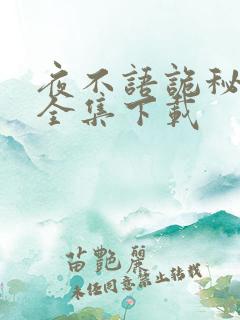 夜不語詭秘
全集下載
苗艷麗
未经同意禁止转载